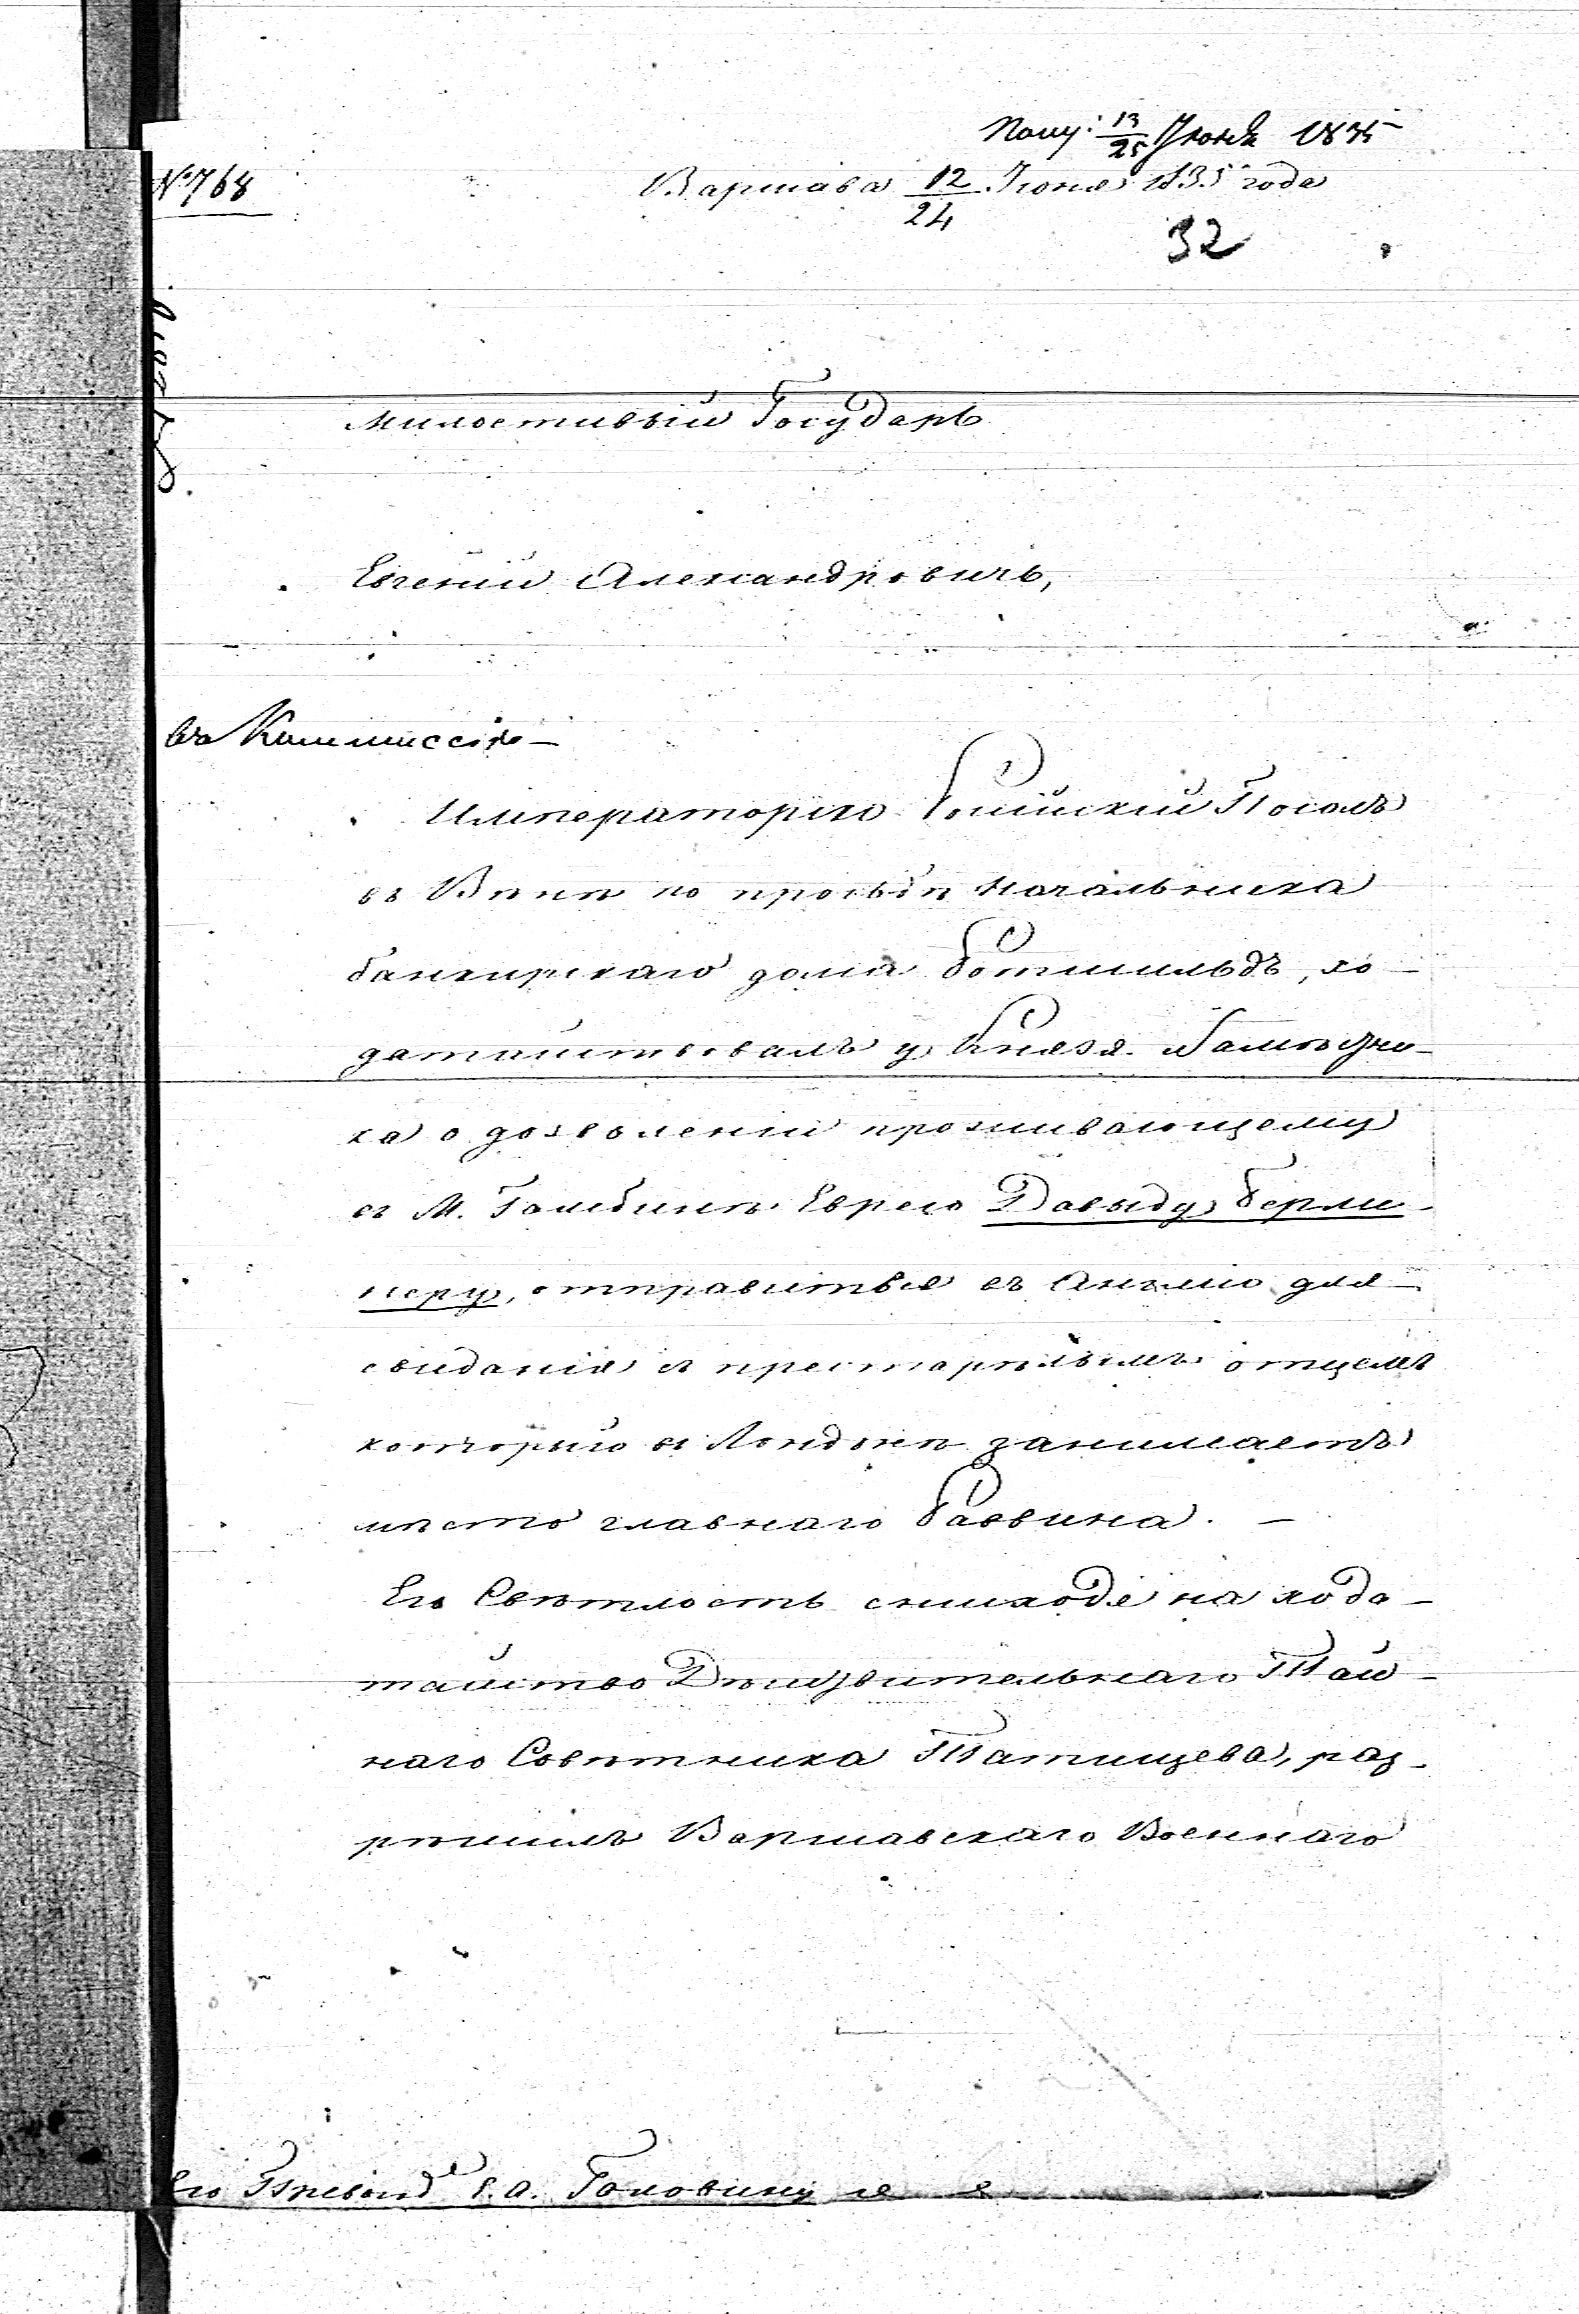 Полу: 13/25 Июня 1835
№ 768
Варшава 12/24 Июня 1835 года
32
Милостивый Государь
Евгений Александровичь,
въ Коммиссію
Императорско Россійскій Посолъ
въ Вѣнѣ по прозьбѣ Начальника
банкирскаго дома Ротшильдъ, хо-
датайствовалъ у Князя
ка о дозволеніи проживающему
въ М. Еврею Давыду Герше-
перу, отправиться въ Англію для
свиданія съ престарѣлымъ отцемъ
который въ Лондонѣ занимаетъ
мѣсто главнаго Раввина. —
Его Свѣтлость снисходя на хода-
тайство Дѣйствительнаго Тай-
наго Совѣтника Татищева, раз-
рѣшилъ Варшавскаго Военнаго
Его Превосход Е. А. Головину